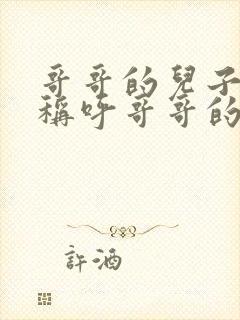 哥哥的兒子
稱呼哥哥的
許酒